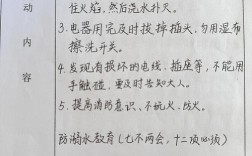 动
内
容
住火焰，然后浇水扑灭。
3.电器用完及时拔掉插头，勿用湿布
擦洗开关。
4.发现有损坏的电线、插座等，不能用
手触碰，要及时告知大人。
5.提高消防意识、不玩火、防火。
防溺水教育(七不两会，十二项必须)